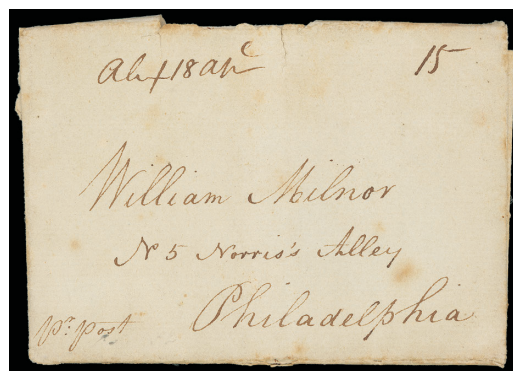 Alex 18 Ap^r 15
William Milnor
No 5 Norris's Alley
Philadelphia
pr. post